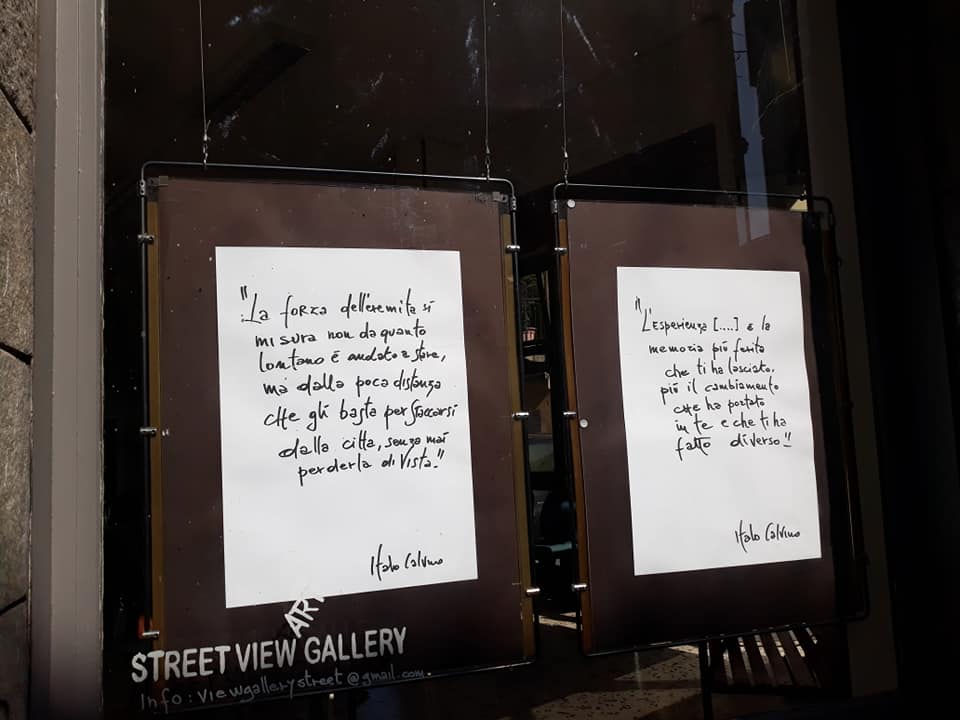 "La forza dell'eremita si
misura non da quanto
lontano è andato a stare,
ma dalla poca distanza
che gli basta per staccarsi
dalla città, senza mai
perderla di vista."
Italo Calvino
"L'esperienza [....] è la
memoria più ferita
che ti ha lasciato.
più il cambiamento
che ha portato
in te e che ti ha
fatto diverso"
Italo Calvino
ART
STREET VIEW GALLERY
Info: viewgallerystreet@gmail.com